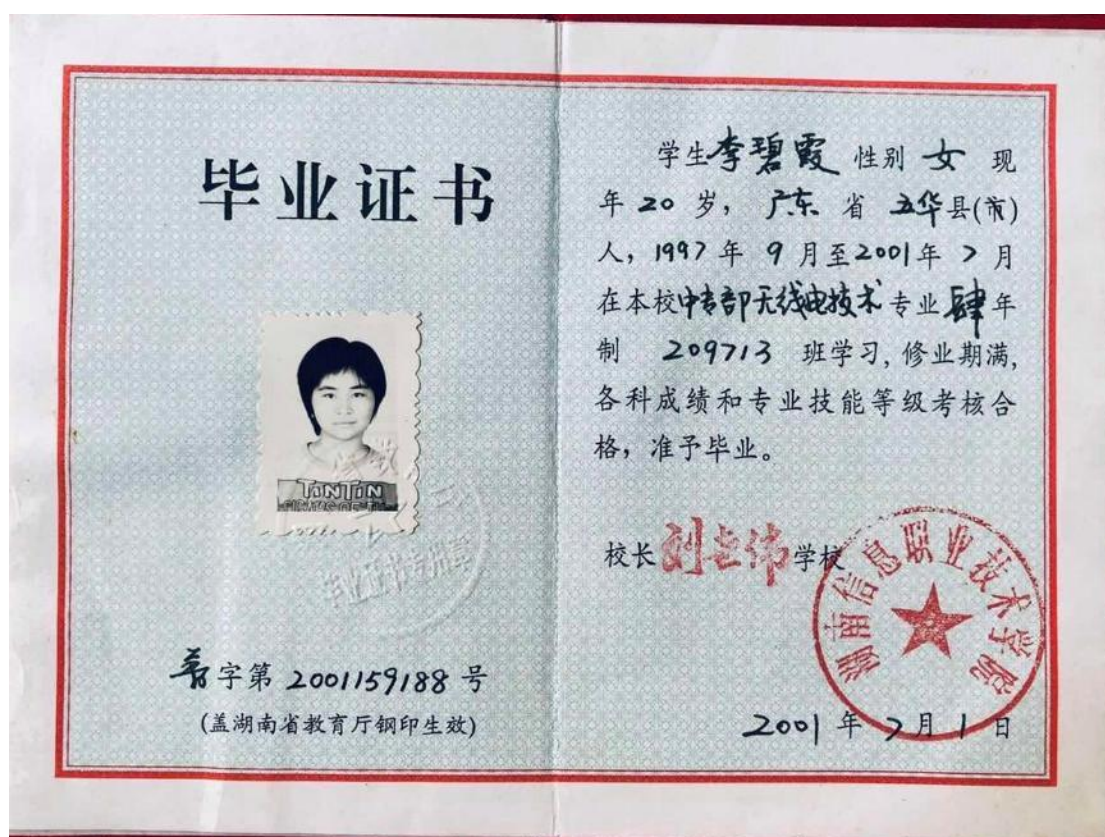 毕业证书
TINTIN
普字第 2001159188 号
(盖湖南省教育厅钢印生效)
毕业证书专用章
学生李碧霞 性别 女 现
年 20 岁, 广东 省 五华县(市)
人, 1997 年 9 月至2001年 7 月
在本校中专部无线电技术专业肆年
制 209713 班学习, 修业期满,
各科成绩和专业技能等级考核合
格, 准予毕业。
校长 学校
湖南信息职业技术学院
2001 年 7 月 1 日